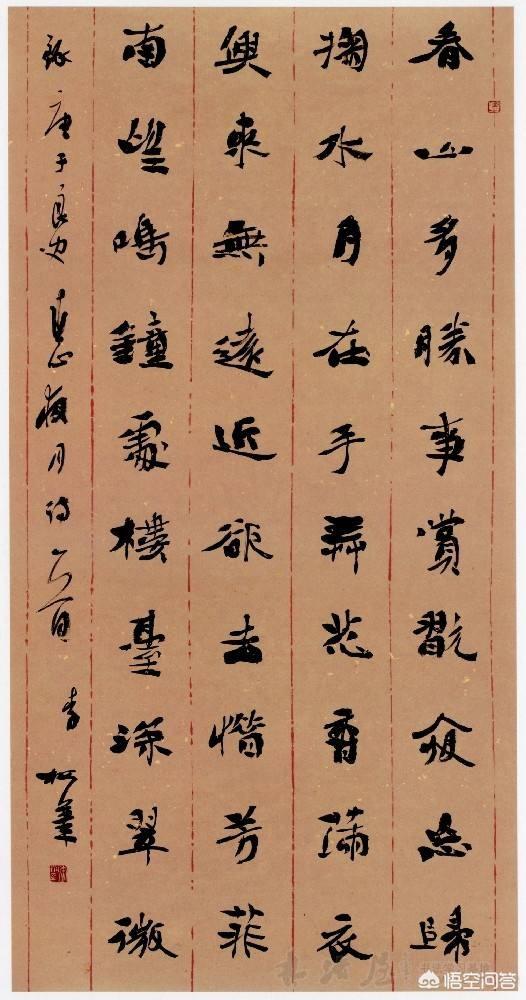 春山多勝事賞翫夜忘歸
掬水月在手弄花香滿衣
興來無遠近欲去惜芳菲
南望鳴鐘處樓臺深翠微
錄唐于良史春山夜月詩一首
李松筆
悟空问答